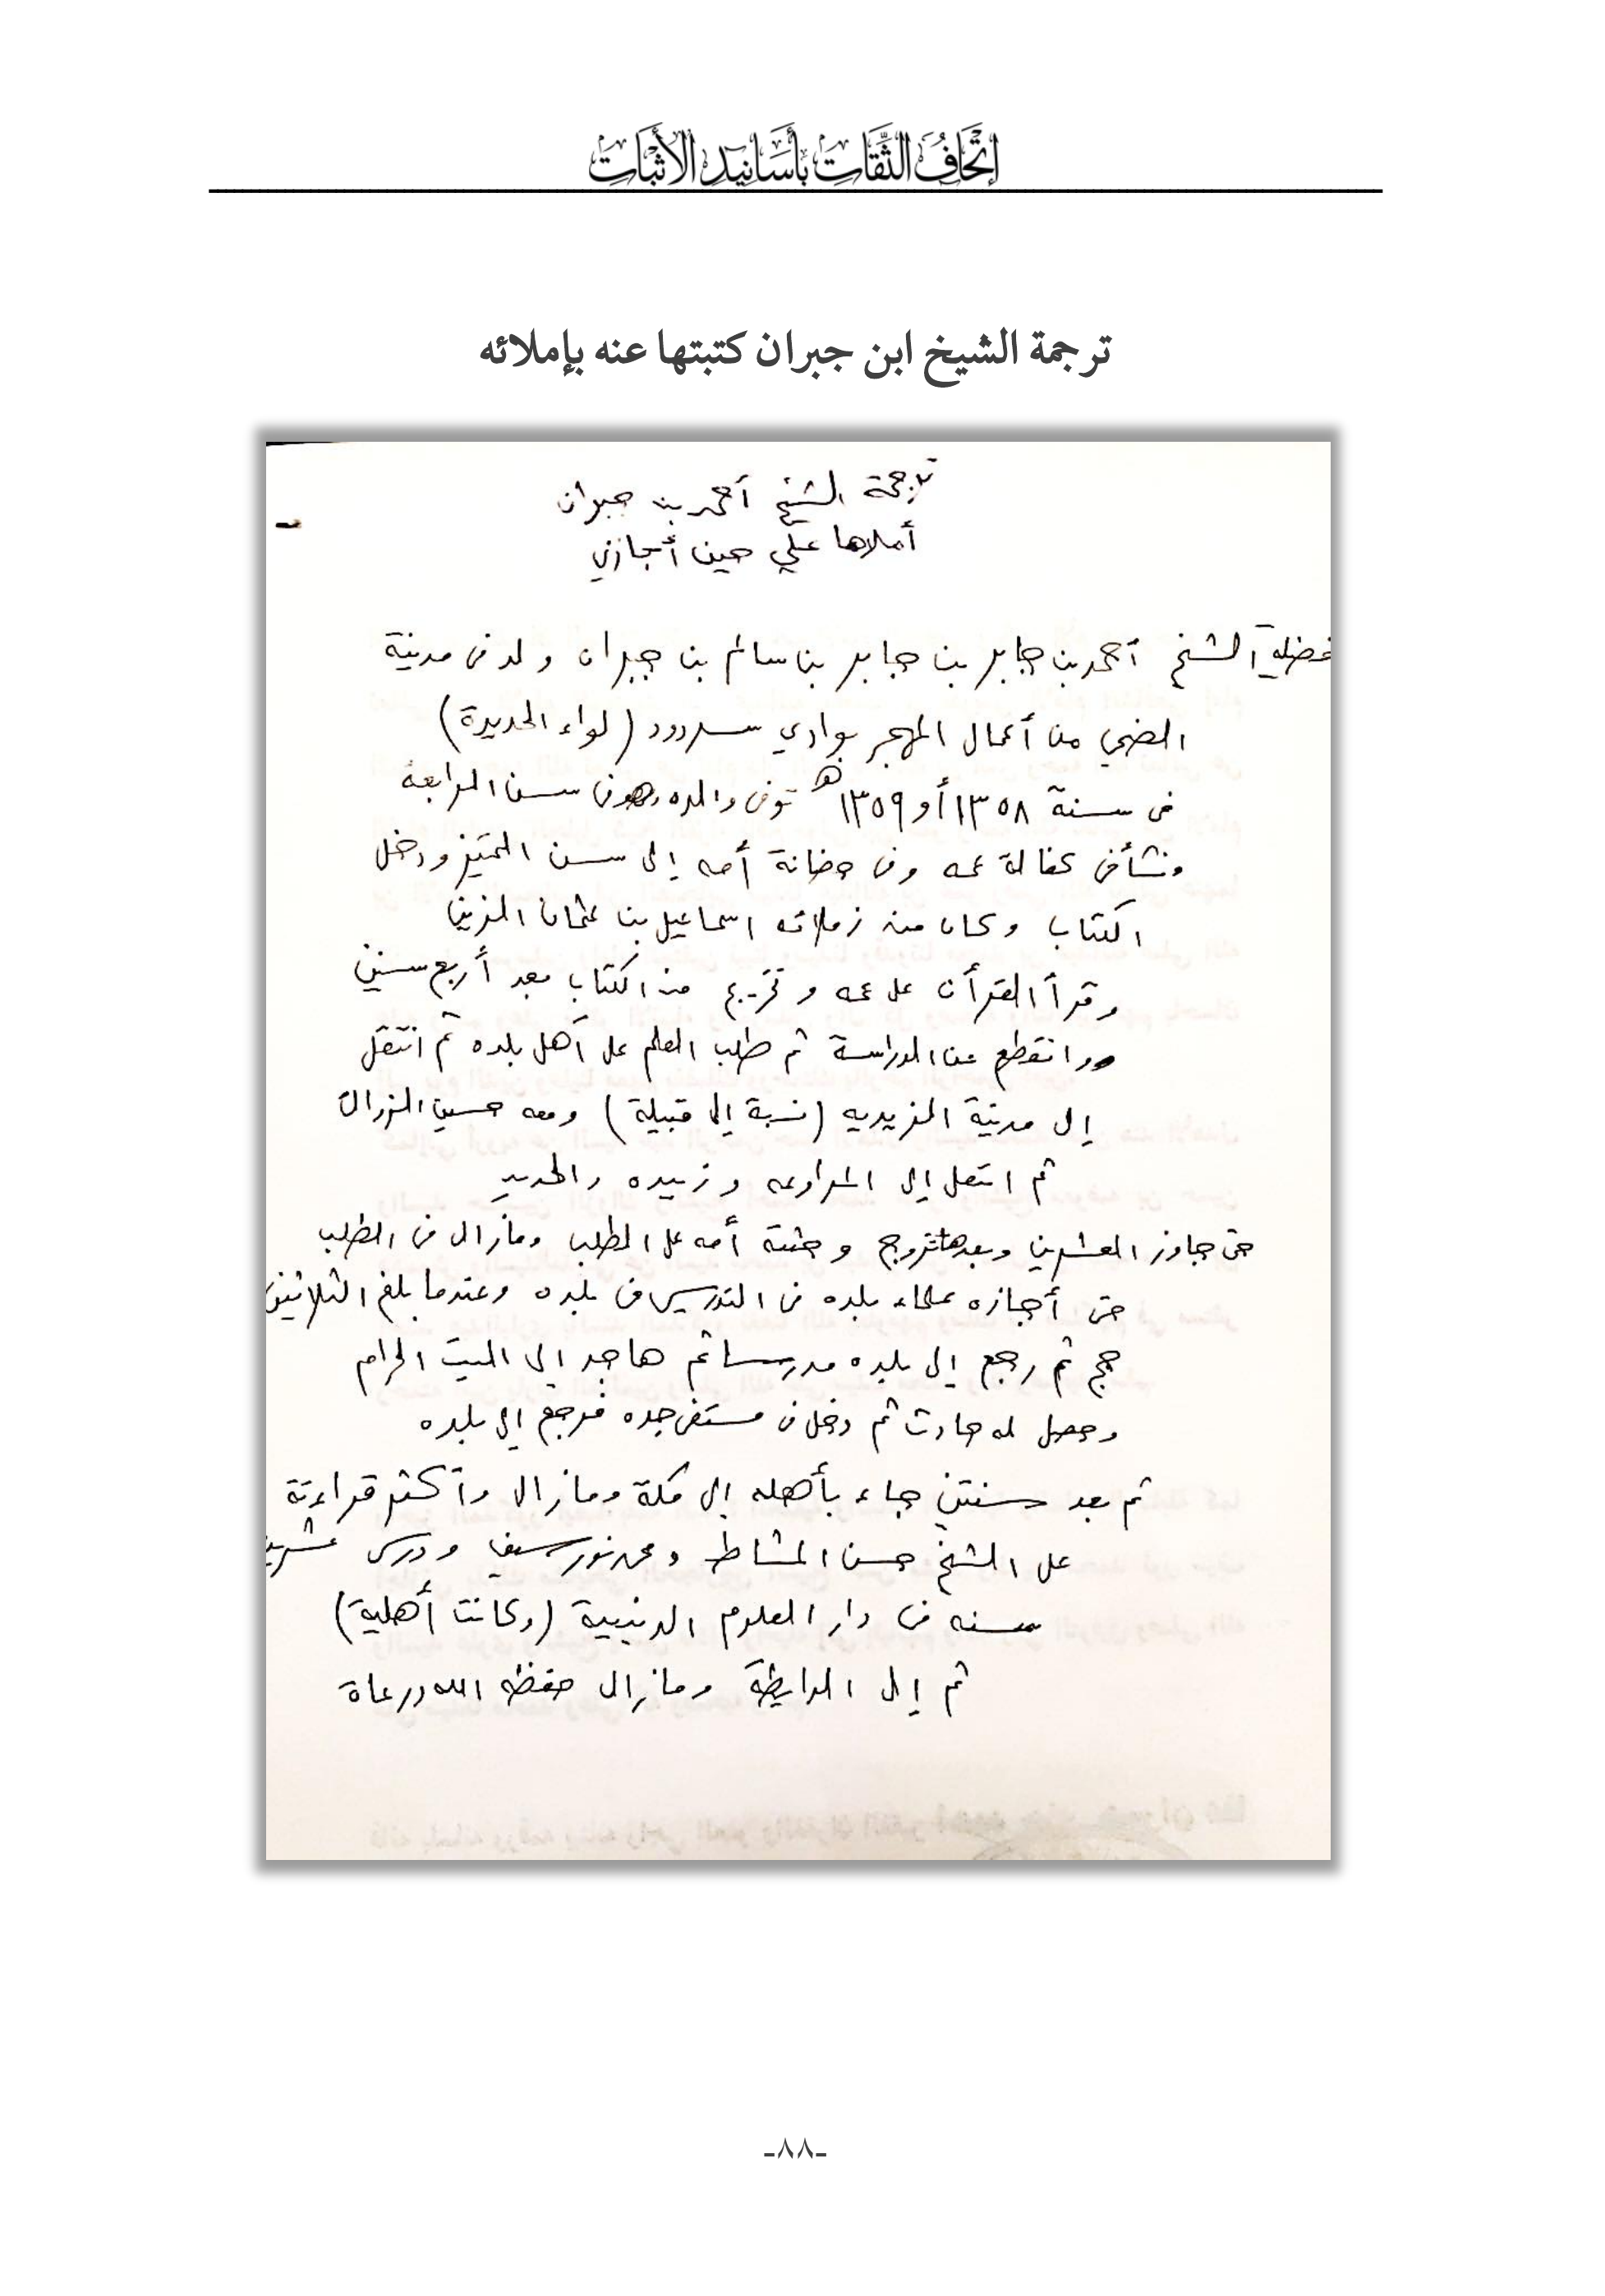 إتحاف الثقات بأسانيد الأثبات
ترجمة الشيخ ابن جبران كتبتها عنه بإملائه
ترجمة الشيخ أحمد بن جبران
أملاها علي حين أجازني
فضيلة الشيخ أحمد بن جابر بن جابر بن سالم بن جبران ولد في مدينة
الضحي من أعمال المهجر بوادي سردود (لواء الحديدة)
في سنة ١٣٥٨ أو ١٣٥٩ هـ توفي والده وهو في سن الرابعة
ونشأ في كفالة عمه وفي حضانة أمه إلى سن التميز ودخل
الكتاب وكان من زملائه اسماعيل بن عثمان الزين
وقرأ القرأن على عمه وتخرج من الكتاب بعد أربع سنين
وانقطع عن الدراسة ثم طلب العلم على أهل بلده ثم انتقل
إلى مدينة الزيديه (نسبة إلى قبيلة) ومعه حسين الزواك
ثم انتقل إلى المراوعه وزبيده والحديد
حتى جاوز العشرين وبعدها تزوج وحثته أمه على الطلب ومازال في الطلب
حتى أجازه علماء بلده في التدريس في بلده وعندما بلغ الثلاثين
حج ثم رجع إلى بلده مدرسا ثم هاجر إلى البيت الحرام
وحصل له حادث ثم دخل في مستشفى جده فرجع إلى بلده
ثم بعد سنتين جاء بأهله إلى مكة ومازال وأكثر قراءته
على الشيخ حسن المشاط ومحمد نور سيف ودرس عشرين
سنه في دار العلوم الدينية (وكانت أهلية)
ثم إلى الرابطة ومازال حفظه الله ورعاة
-٨٨-